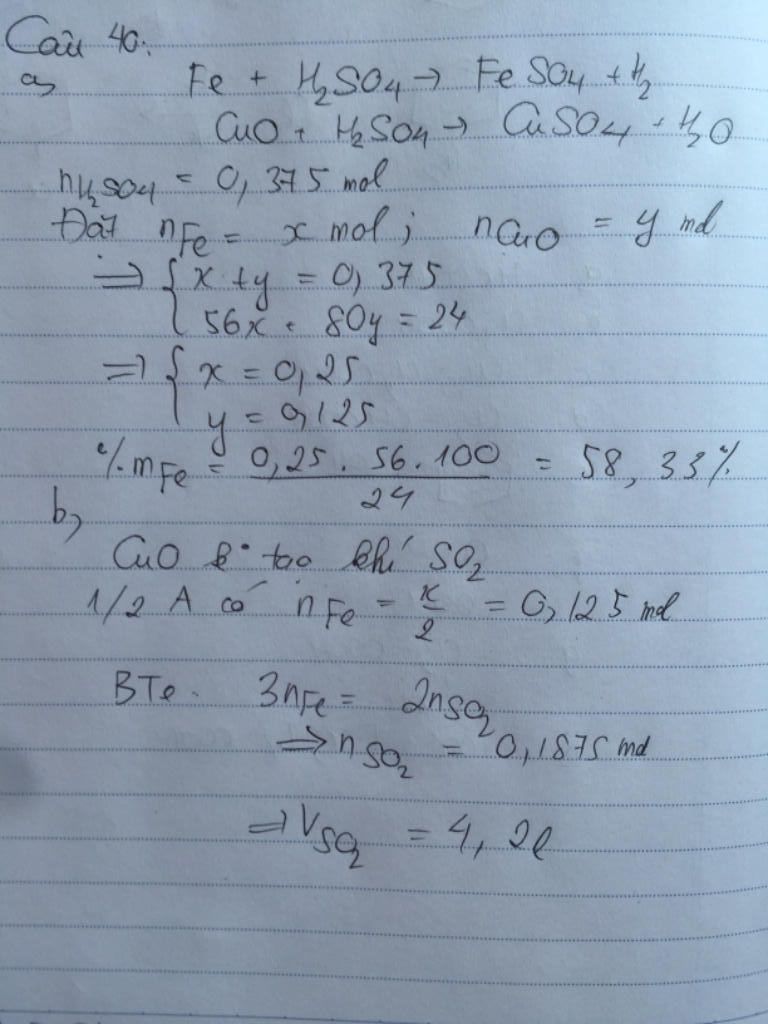 Câu 40:
a, Fe + H₂SO₄ → FeSO₄ + H₂
CuO + H₂SO₄ → CuSO₄ + H₂O
nH₂SO₄ = 0,375 mol
Đặt nFe = x mol ; nCuO = y mol
⇒ { x + y = 0,375
56x + 80y = 24
⇒ { x = 0,25
y = 0,125
%mFe = 0,25 . 56 . 100 / 24 = 58,33%
b,
CuO k° tạo khí SO₂
1/2 A có nFe = x/2 = 0,125 mol
BTe. 3nFe = 2nSO₂
⇒ nSO₂ = 0,1875 mol
⇒ VSO₂ = 4,2l